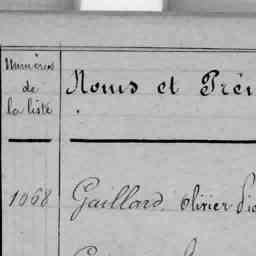 Numéros
de
la liste
Noms et Pré
1068 Gaillard Olivier